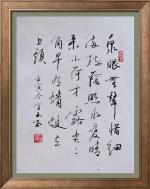 泉眼無聲惜細
流樹蔭照水愛晴
柔小荷才露尖尖
角早有蜻蜓立
上頭